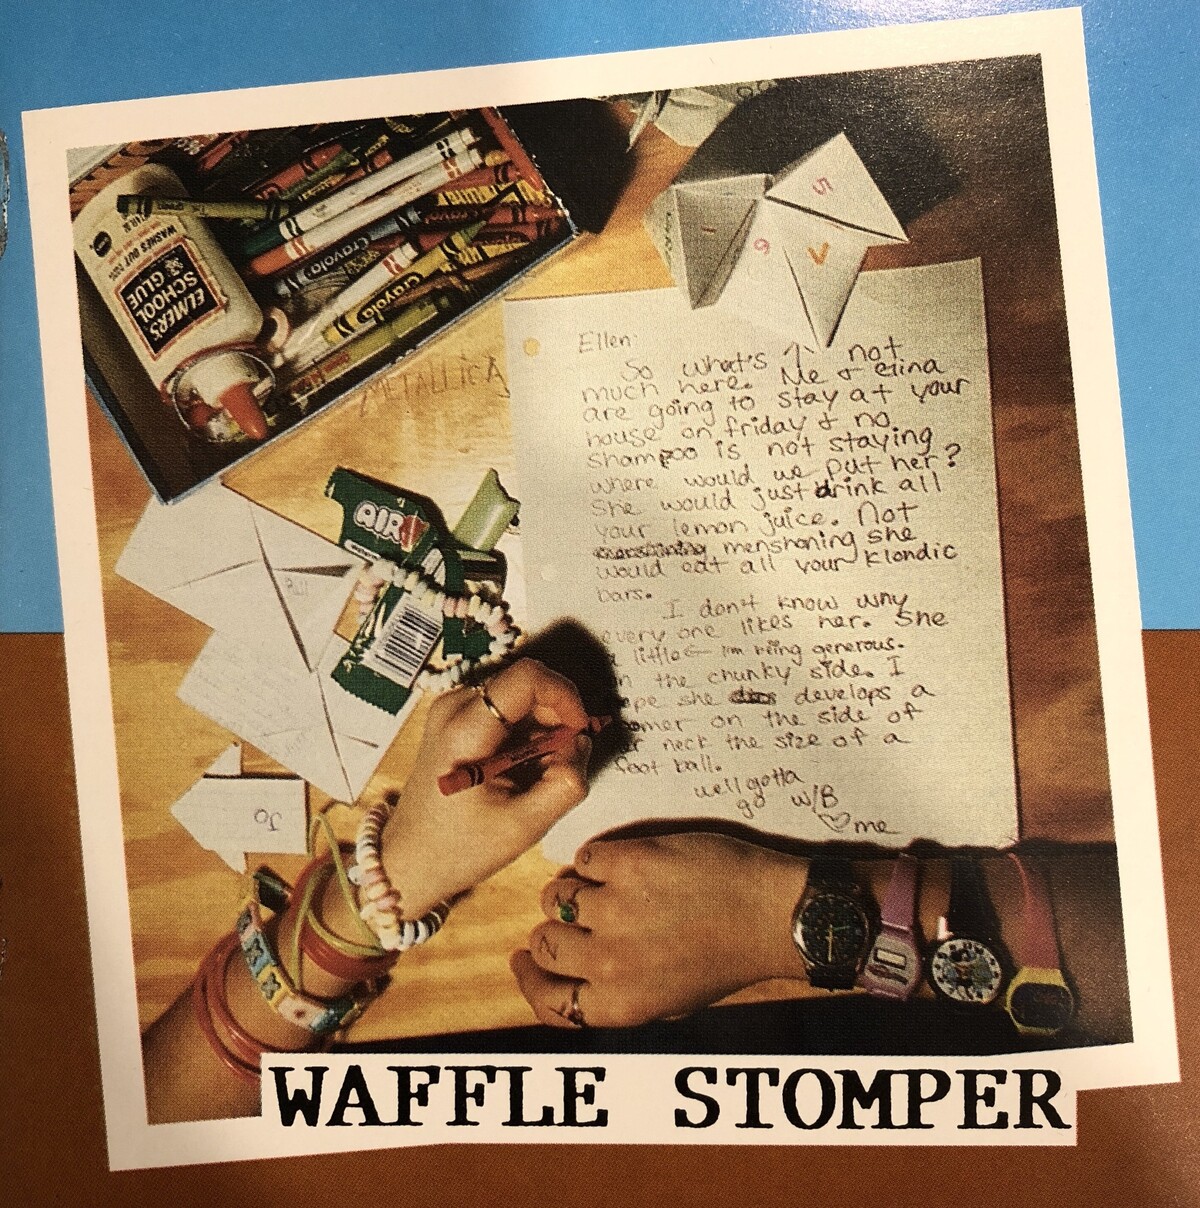 WASHES OUT
ELMER'S
SCHOOL
GLUE
Crayola
Crayola
Crayola
METALLICA
5
1
6
AIR
Ellen
So what's ↑ not
much here. Me &
are going to stay at your
house on friday & no
shampoo is not staying
where would we put her?
She would just drink all
your lemon juice. Not
menshoning she
would eat all your Klondic
bars.
I don't know why
every one likes her. She
little ← I'm being generous.
the chunky side. I
she develops a
on the side of
neck the size of a
foot ball.
well gotta
go w/B
♡ me
Jo
WAFFLE STOMPER